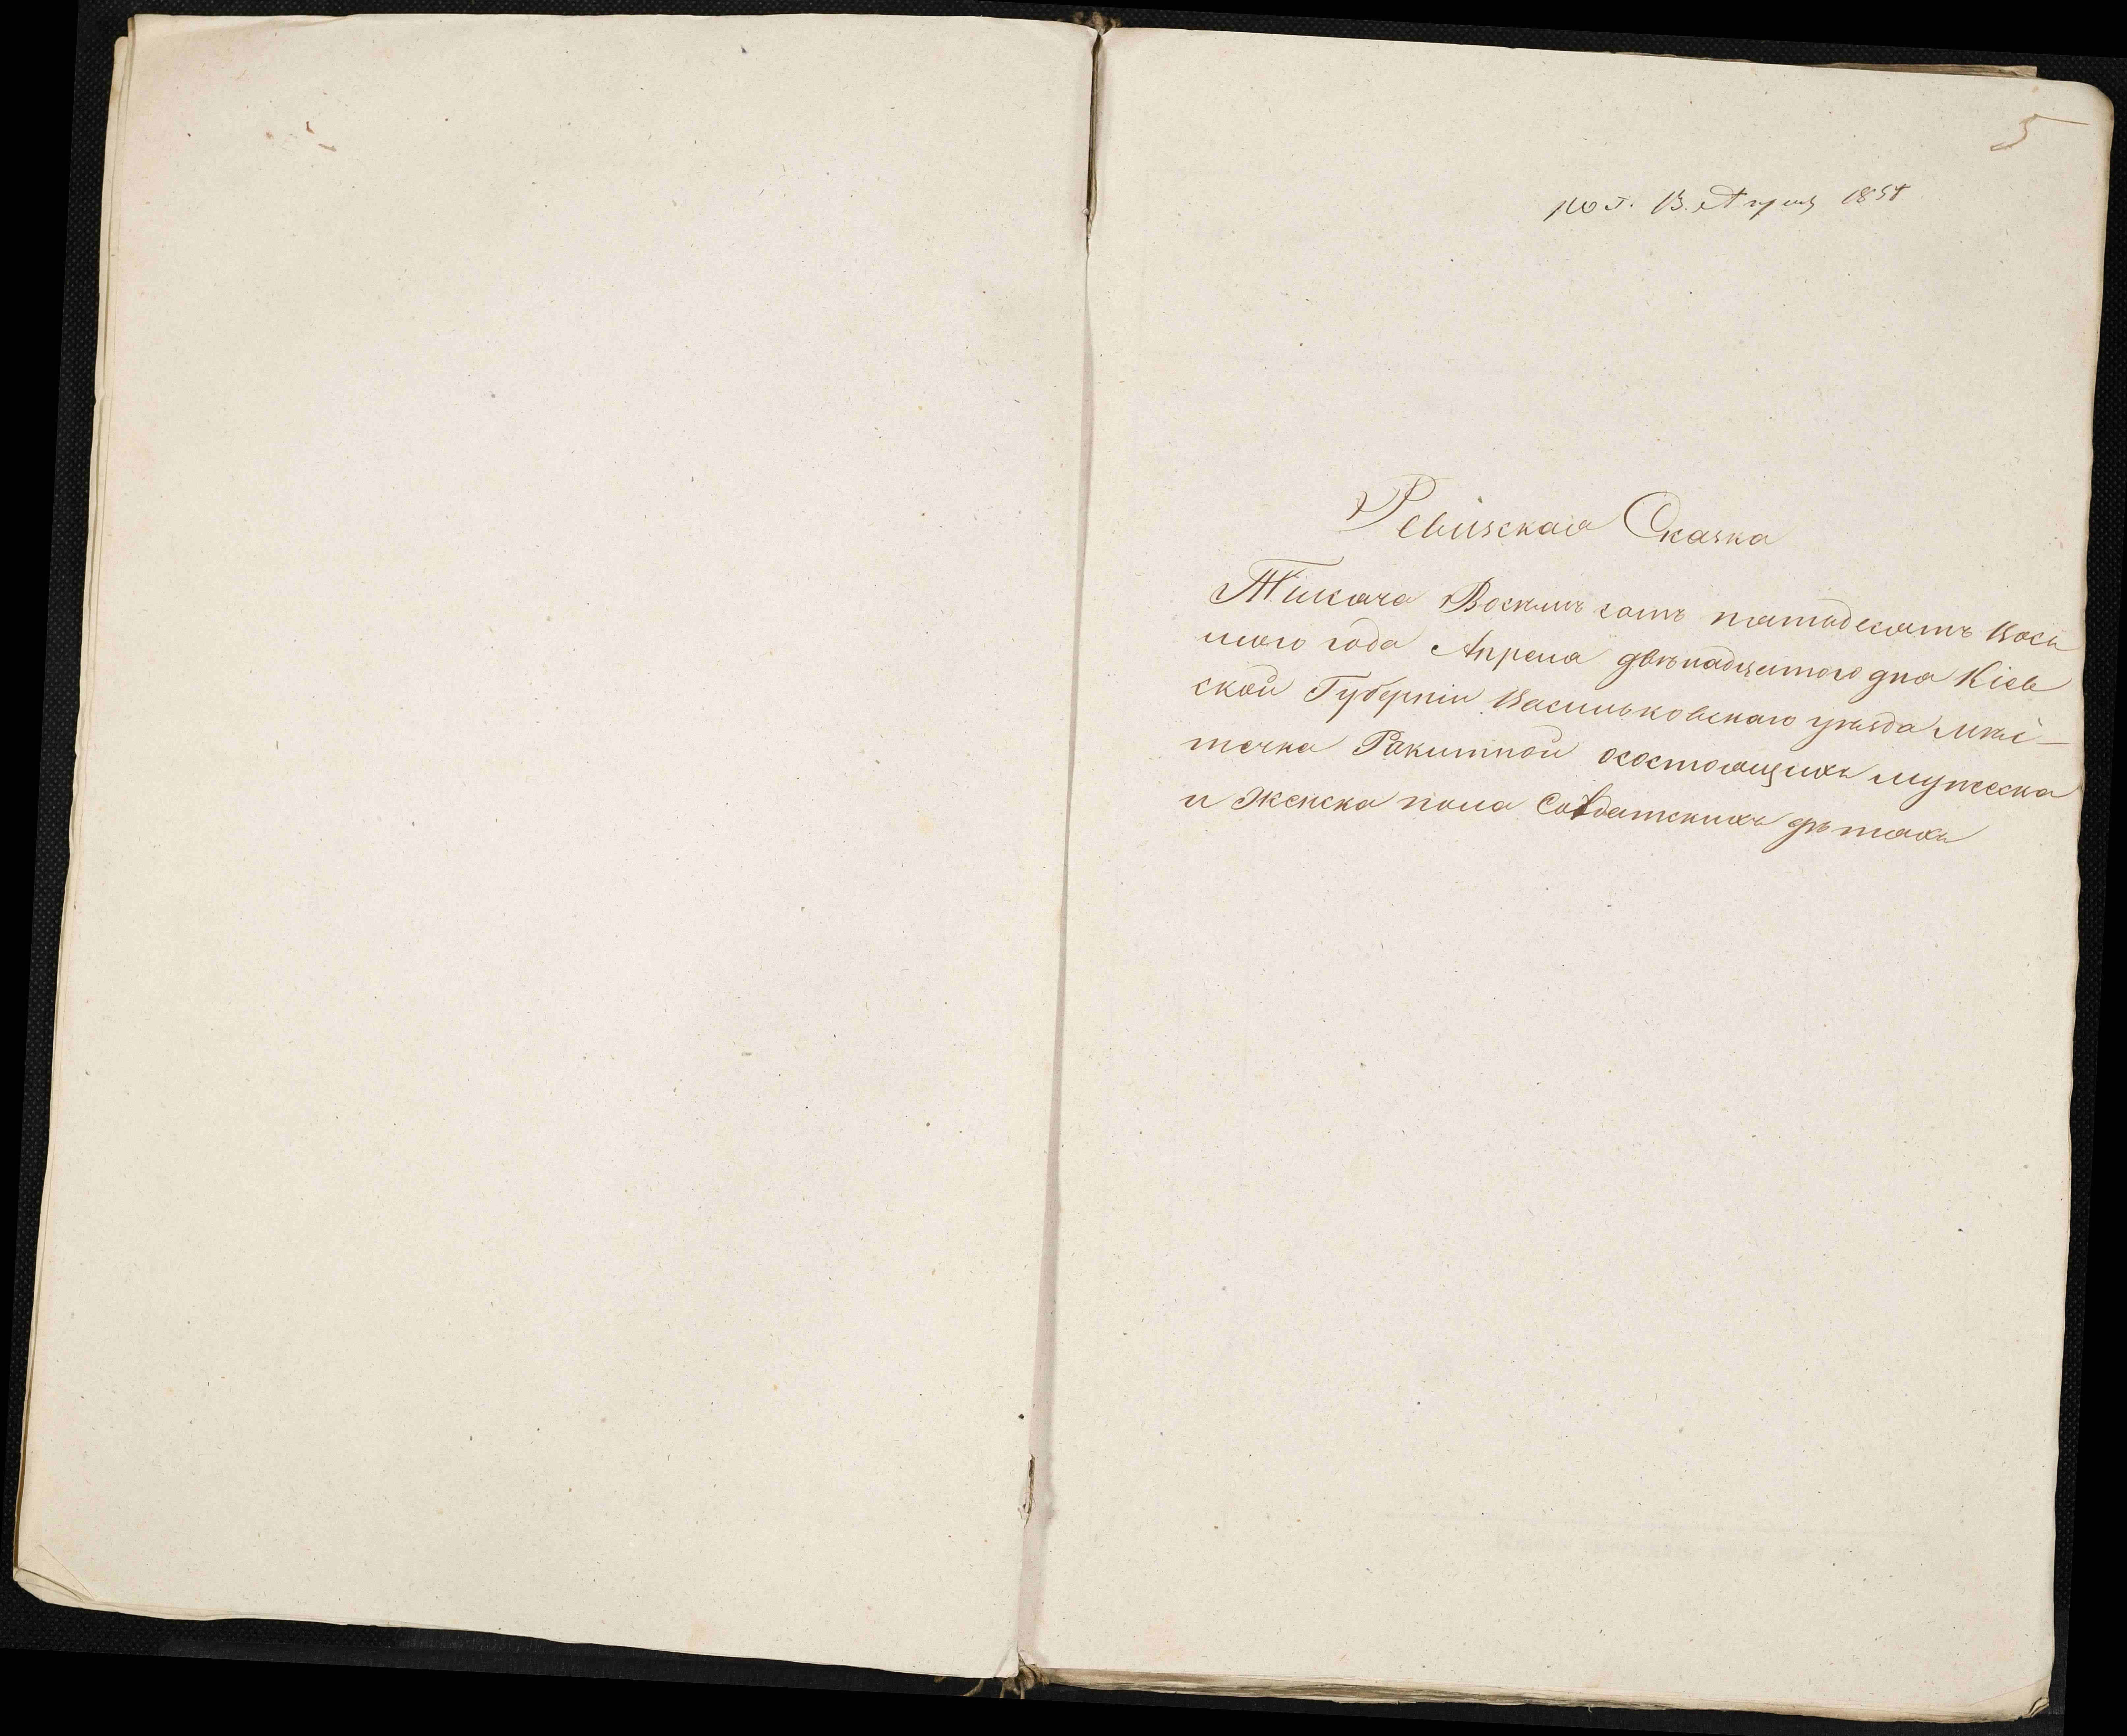 5
пол. 13. Апреля 1858
Ревизская Сказка
Тисяча Восемь сотъ пятьдесятъ Вось
мого года Апреля двѣнадцятого дня Кіев
ской Губерніи Васильковскаго уѣзда Мѣс-
течка Ракитной осостоящихъ мужеска
и Женска пола Солдатскихъ дѣтяхъ